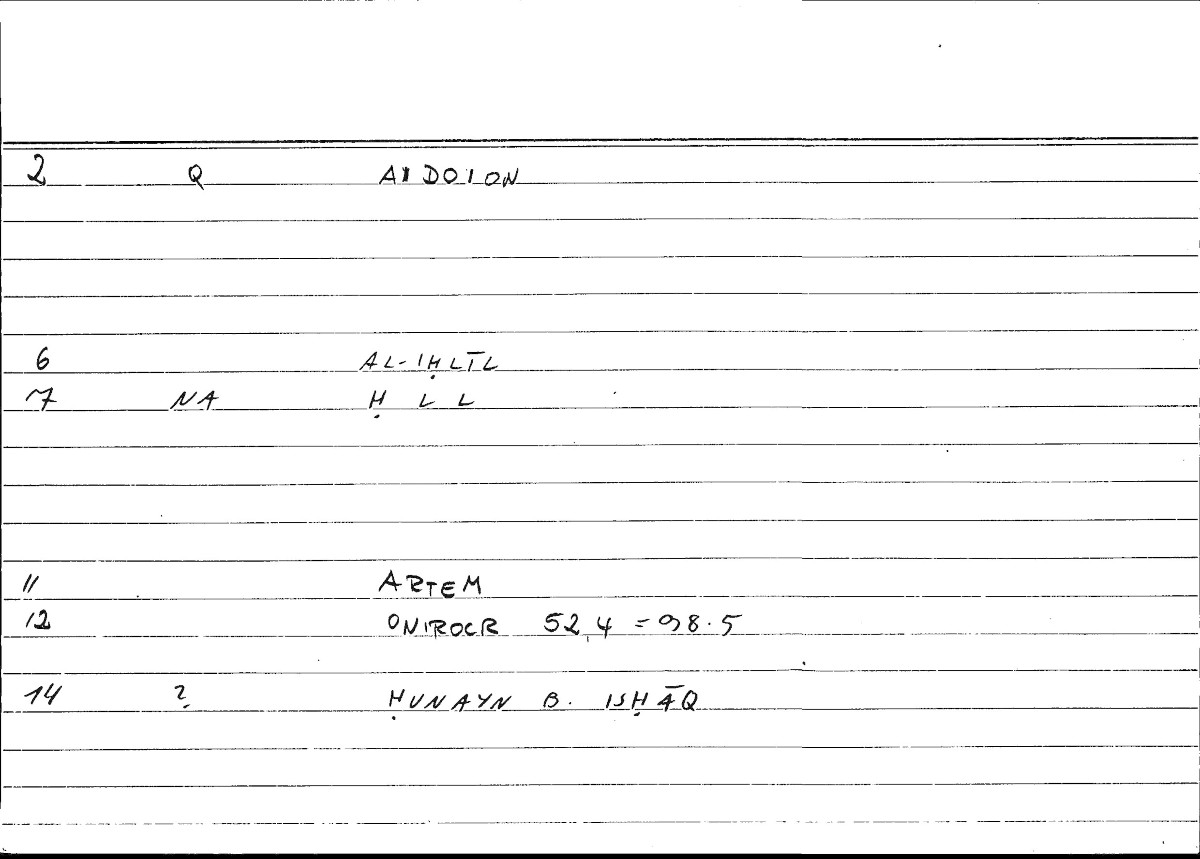 2 Q AIDOION
6 AL-IḤLĪL
7 NA Ḥ L L
11 ARTEM
12 ONIROCR 52,4 = 98.5
14 ? ḤUNAYN B. ISḤĀQ